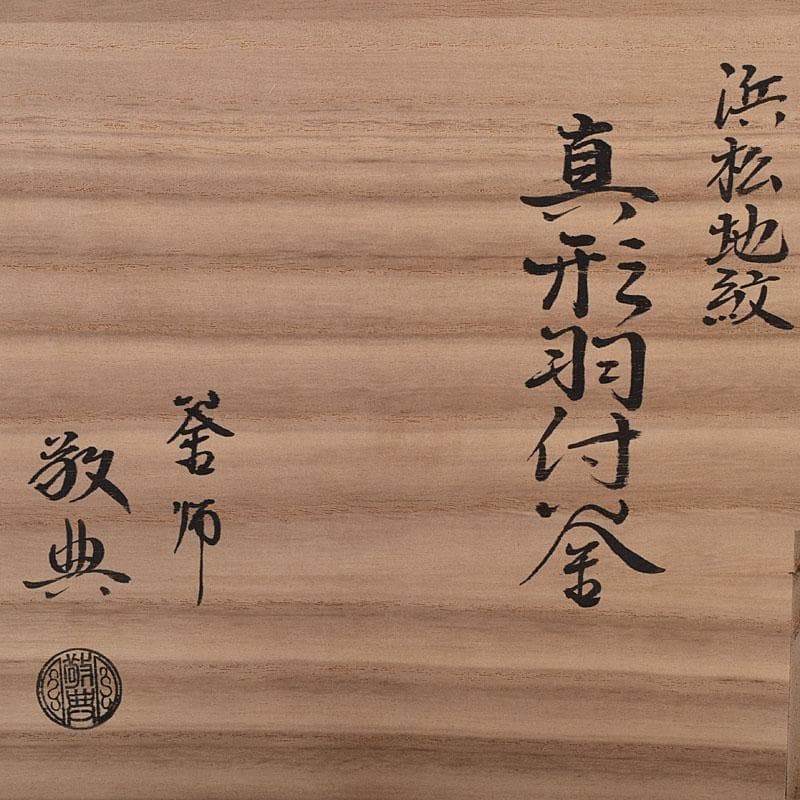 浜松地紋
真形羽付釜
釜師
敬典
敬典